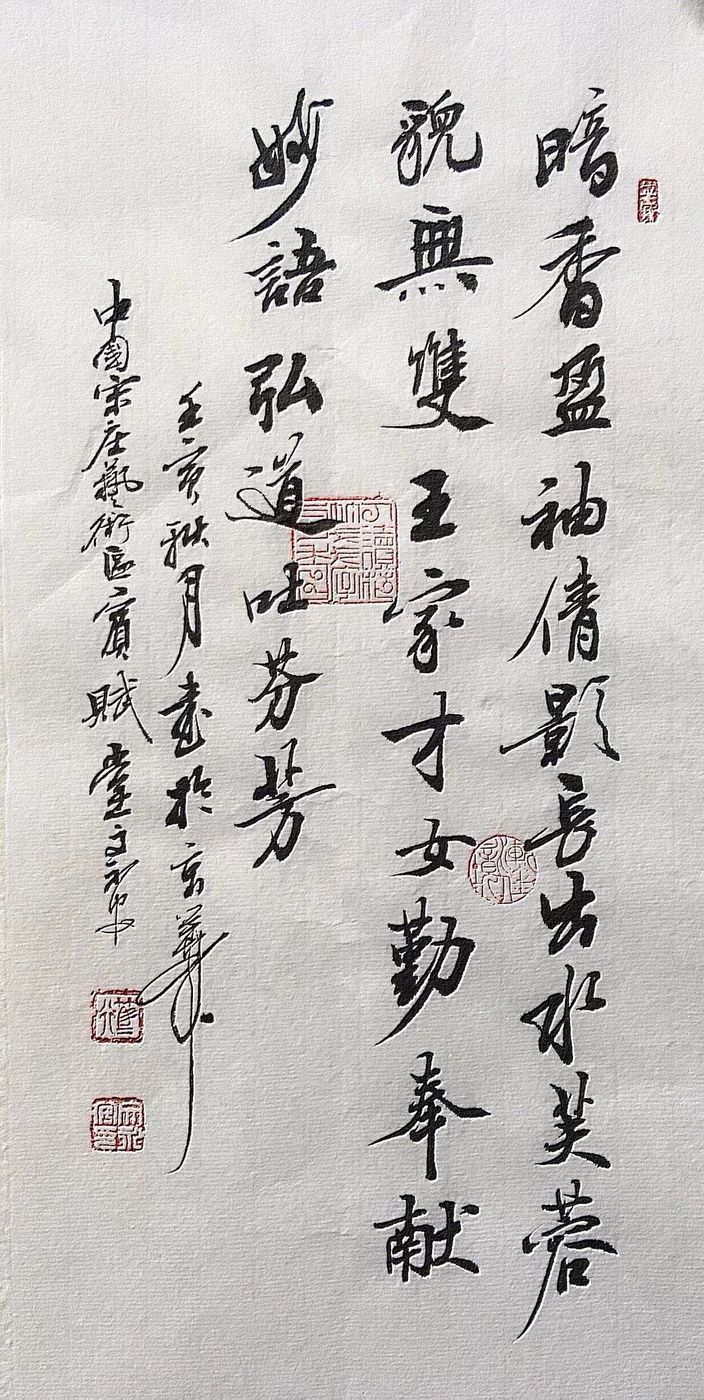 暗香盈袖倩影長出水芙蓉
貌無雙王家才女勤奉献
妙語弘道吐芬芳
壬寅秋月書於京華
中國宋庄藝術區賓賦堂主